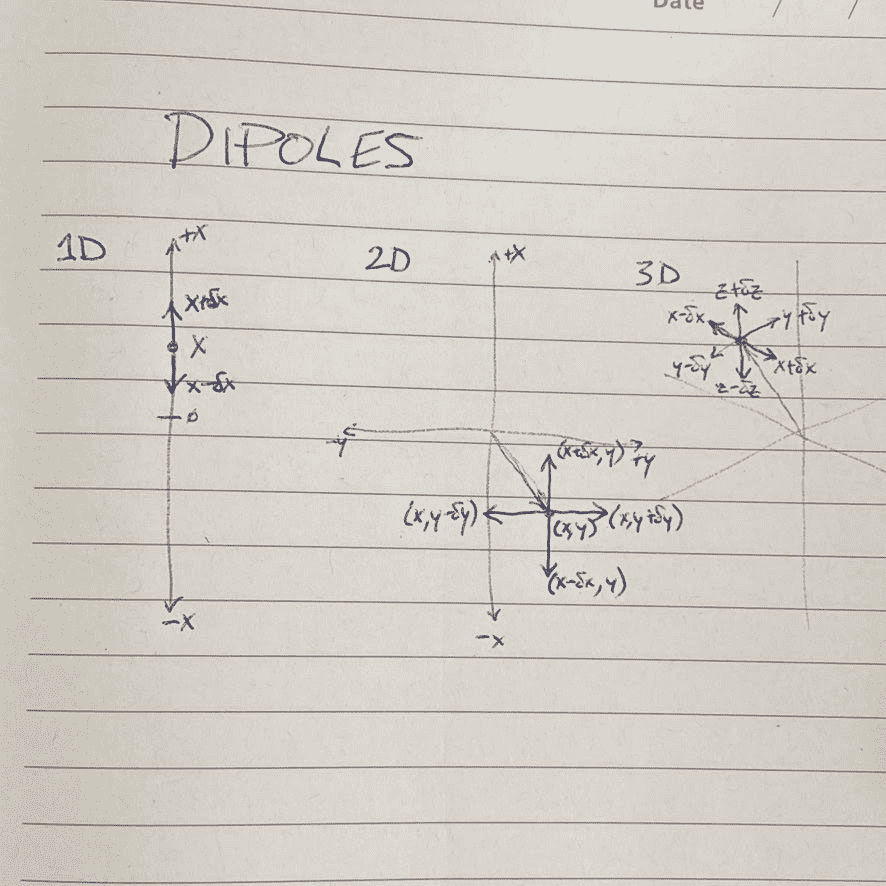 Date / /
DIPOLES
1D
+X
X+δx
X
X-δx
0
-X
2D
+X
-y
+y
(x+δx,y)
(x,y-δy)
(x,y)
(x,y+δy)
(x-δx,y)
-x
3D
z+δz
x-δx
y+δy
y-δy
x+δx
z-δz